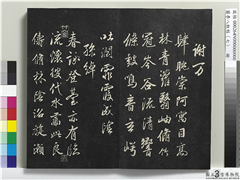 謝万
肆眺崇阿寓目高
林青蘿翳岫脩竹
冠岑谷流清響
條鼓鳴音玄崿
吐潤霏霧成陰
孫綽
春詠登臺亦有臨
流懷彼伐木肅此良
儔脩竹蔭沼旋瀨